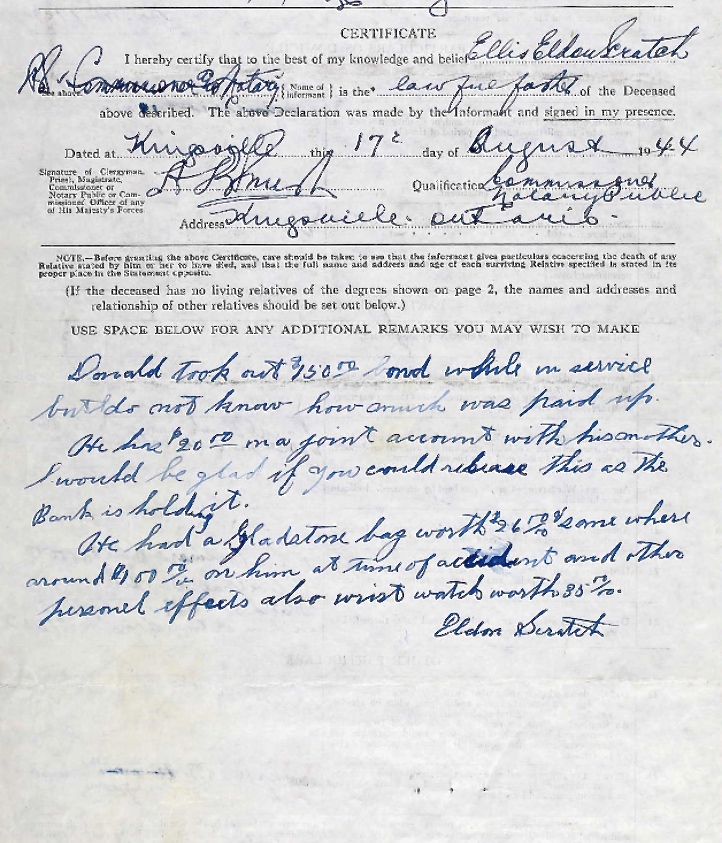 CERTIFICATE
I hereby certify that to the best of my knowledge and belief Ellis Eldon Scratch
See above. Commissioner Notary {Name of Informant} is the* lawful father of the Deceased
above described. The above Declaration was made by the Informant and signed in my presence.
Dated at Kingsville this 17 day of August 1944
Signature of Clergyman,
Priest, Magistrate,
Commissioner or
Notary Public or Com-
missioned Officer of any
of His Majesty's Forces
Qualification Commissioner
Notary Public
Address Kingsville. Ontario.
NOTE.—Before granting the above Certificate, care should be taken to see that the informant gives particulars concerning the death of any
Relative stated by him or her to have died, and that the full name and address and age of each surviving Relative specified is stated in its
proper place in the Statement opposite.
(If the deceased has no living relatives of the degrees shown on page 2, the names and addresses and
relationship of other relatives should be set out below.)
USE SPACE BELOW FOR ANY ADDITIONAL REMARKS YOU MAY WISH TO MAKE
Donald took out $150.00 bond while in service
but do not know how much was paid up.
He has $20.00 in a joint account with his mother.
I would be glad if you could release this as the
Bank is holding it.
He had a Gladstone bag worth $26.00 & some where
around $100.00 on him at time of accident and other
personel effects also wrist watch worth 35.00.
Eldon Scratch